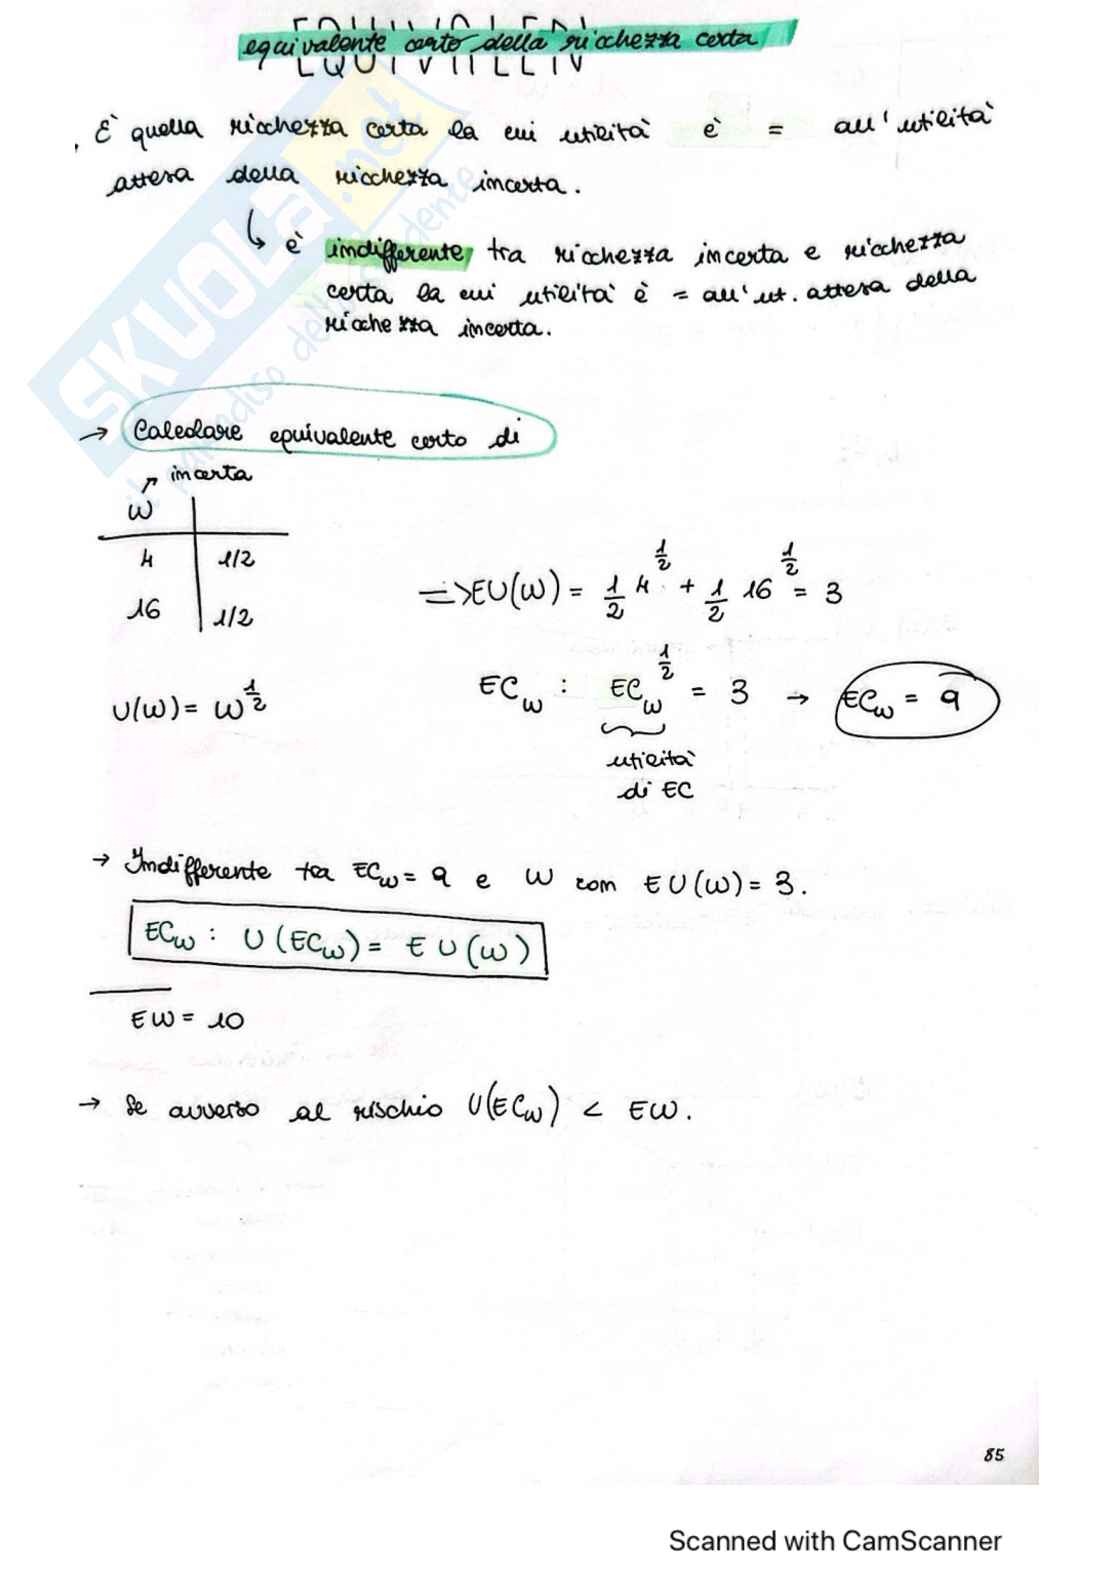 equivalente certo della ricchezza certa
È quella ricchezza certa la cui utilità è = all'utilità
attesa della ricchezza incerta.
↳ è indifferente tra ricchezza incerta e ricchezza
certa la cui utilità è = all'ut. attesa della
ricchezza incerta.
→ Calcolare equivalente certo di
incerta
W
4 1/2
16 1/2
=> EU(W) = 1/2 4^1/2 + 1/2 16^1/2 = 3
U(W) = W^1/2
EC_W : EC_W^1/2 = 3 → EC_W = 9
utilità
di EC
→ Indifferente tra EC_W = 9 e W con EU(W) = 3.
EC_W : U(EC_W) = EU(W)
EW = 10
→ Se avverso al rischio U(EC_W) < EW.
85
SKUOLA.net
il paradiso dello studente
Scanned with CamScanner